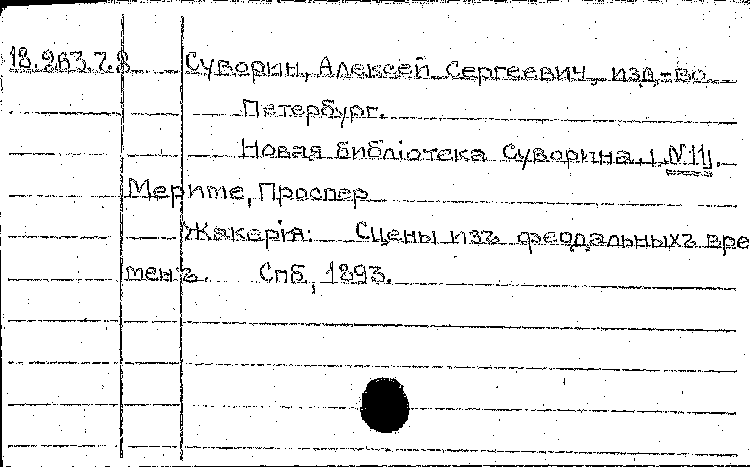 18.263.7.8 Суворин, Алексей Сергеевич, изд-во.
Петербург.
Новая библіотека Суворина. №11.
Мериме, Проспер
Жакерія: Сцены изъ феодальныхъ вре
менъ. Спб, 1893.